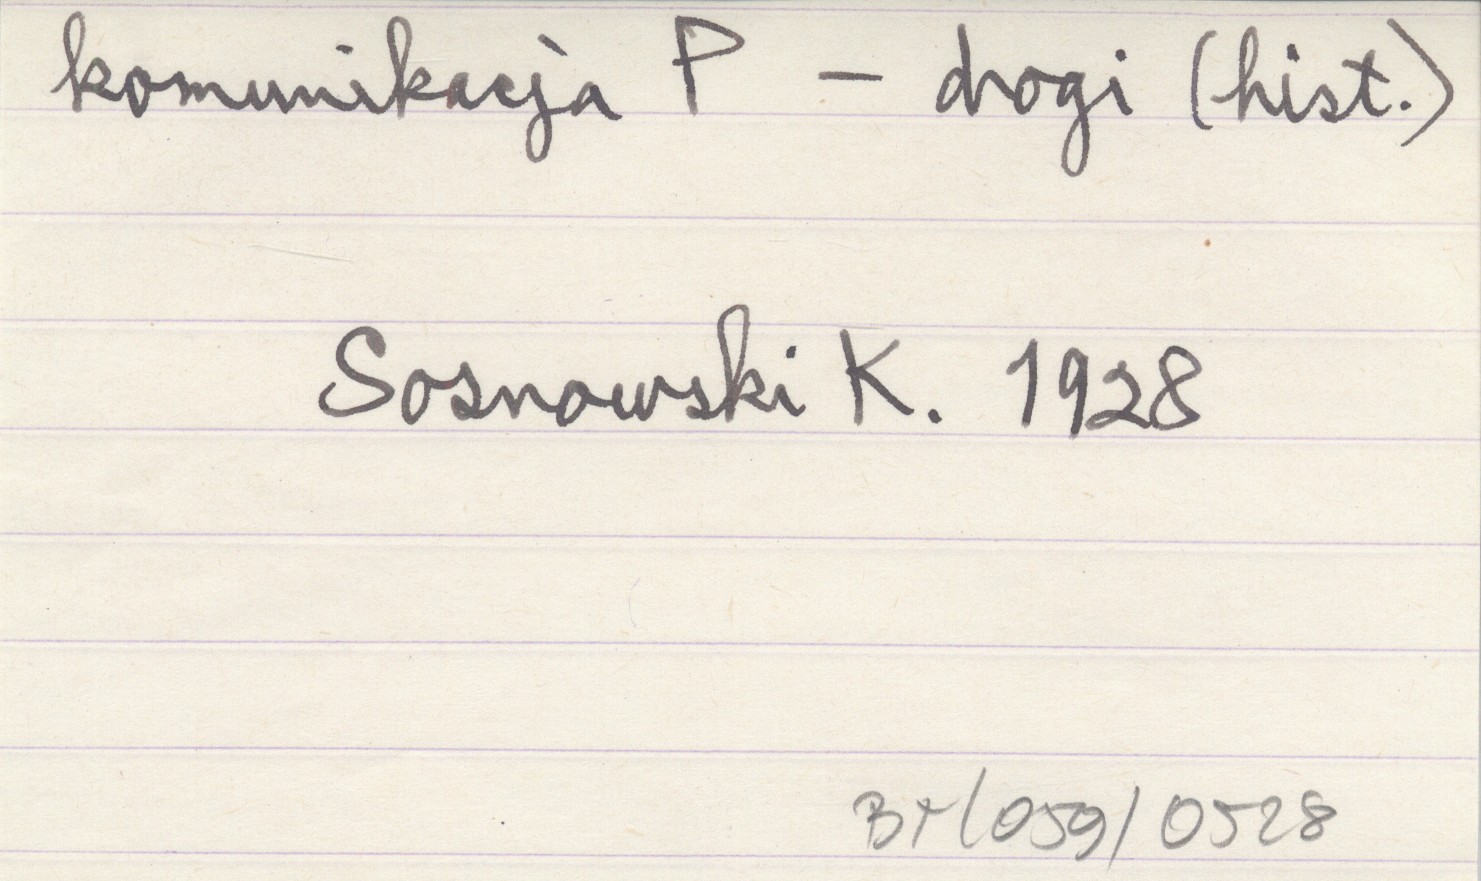 komunikacja P – drogi (hist.)
Sosnowski K. 1928
BT/059/0528